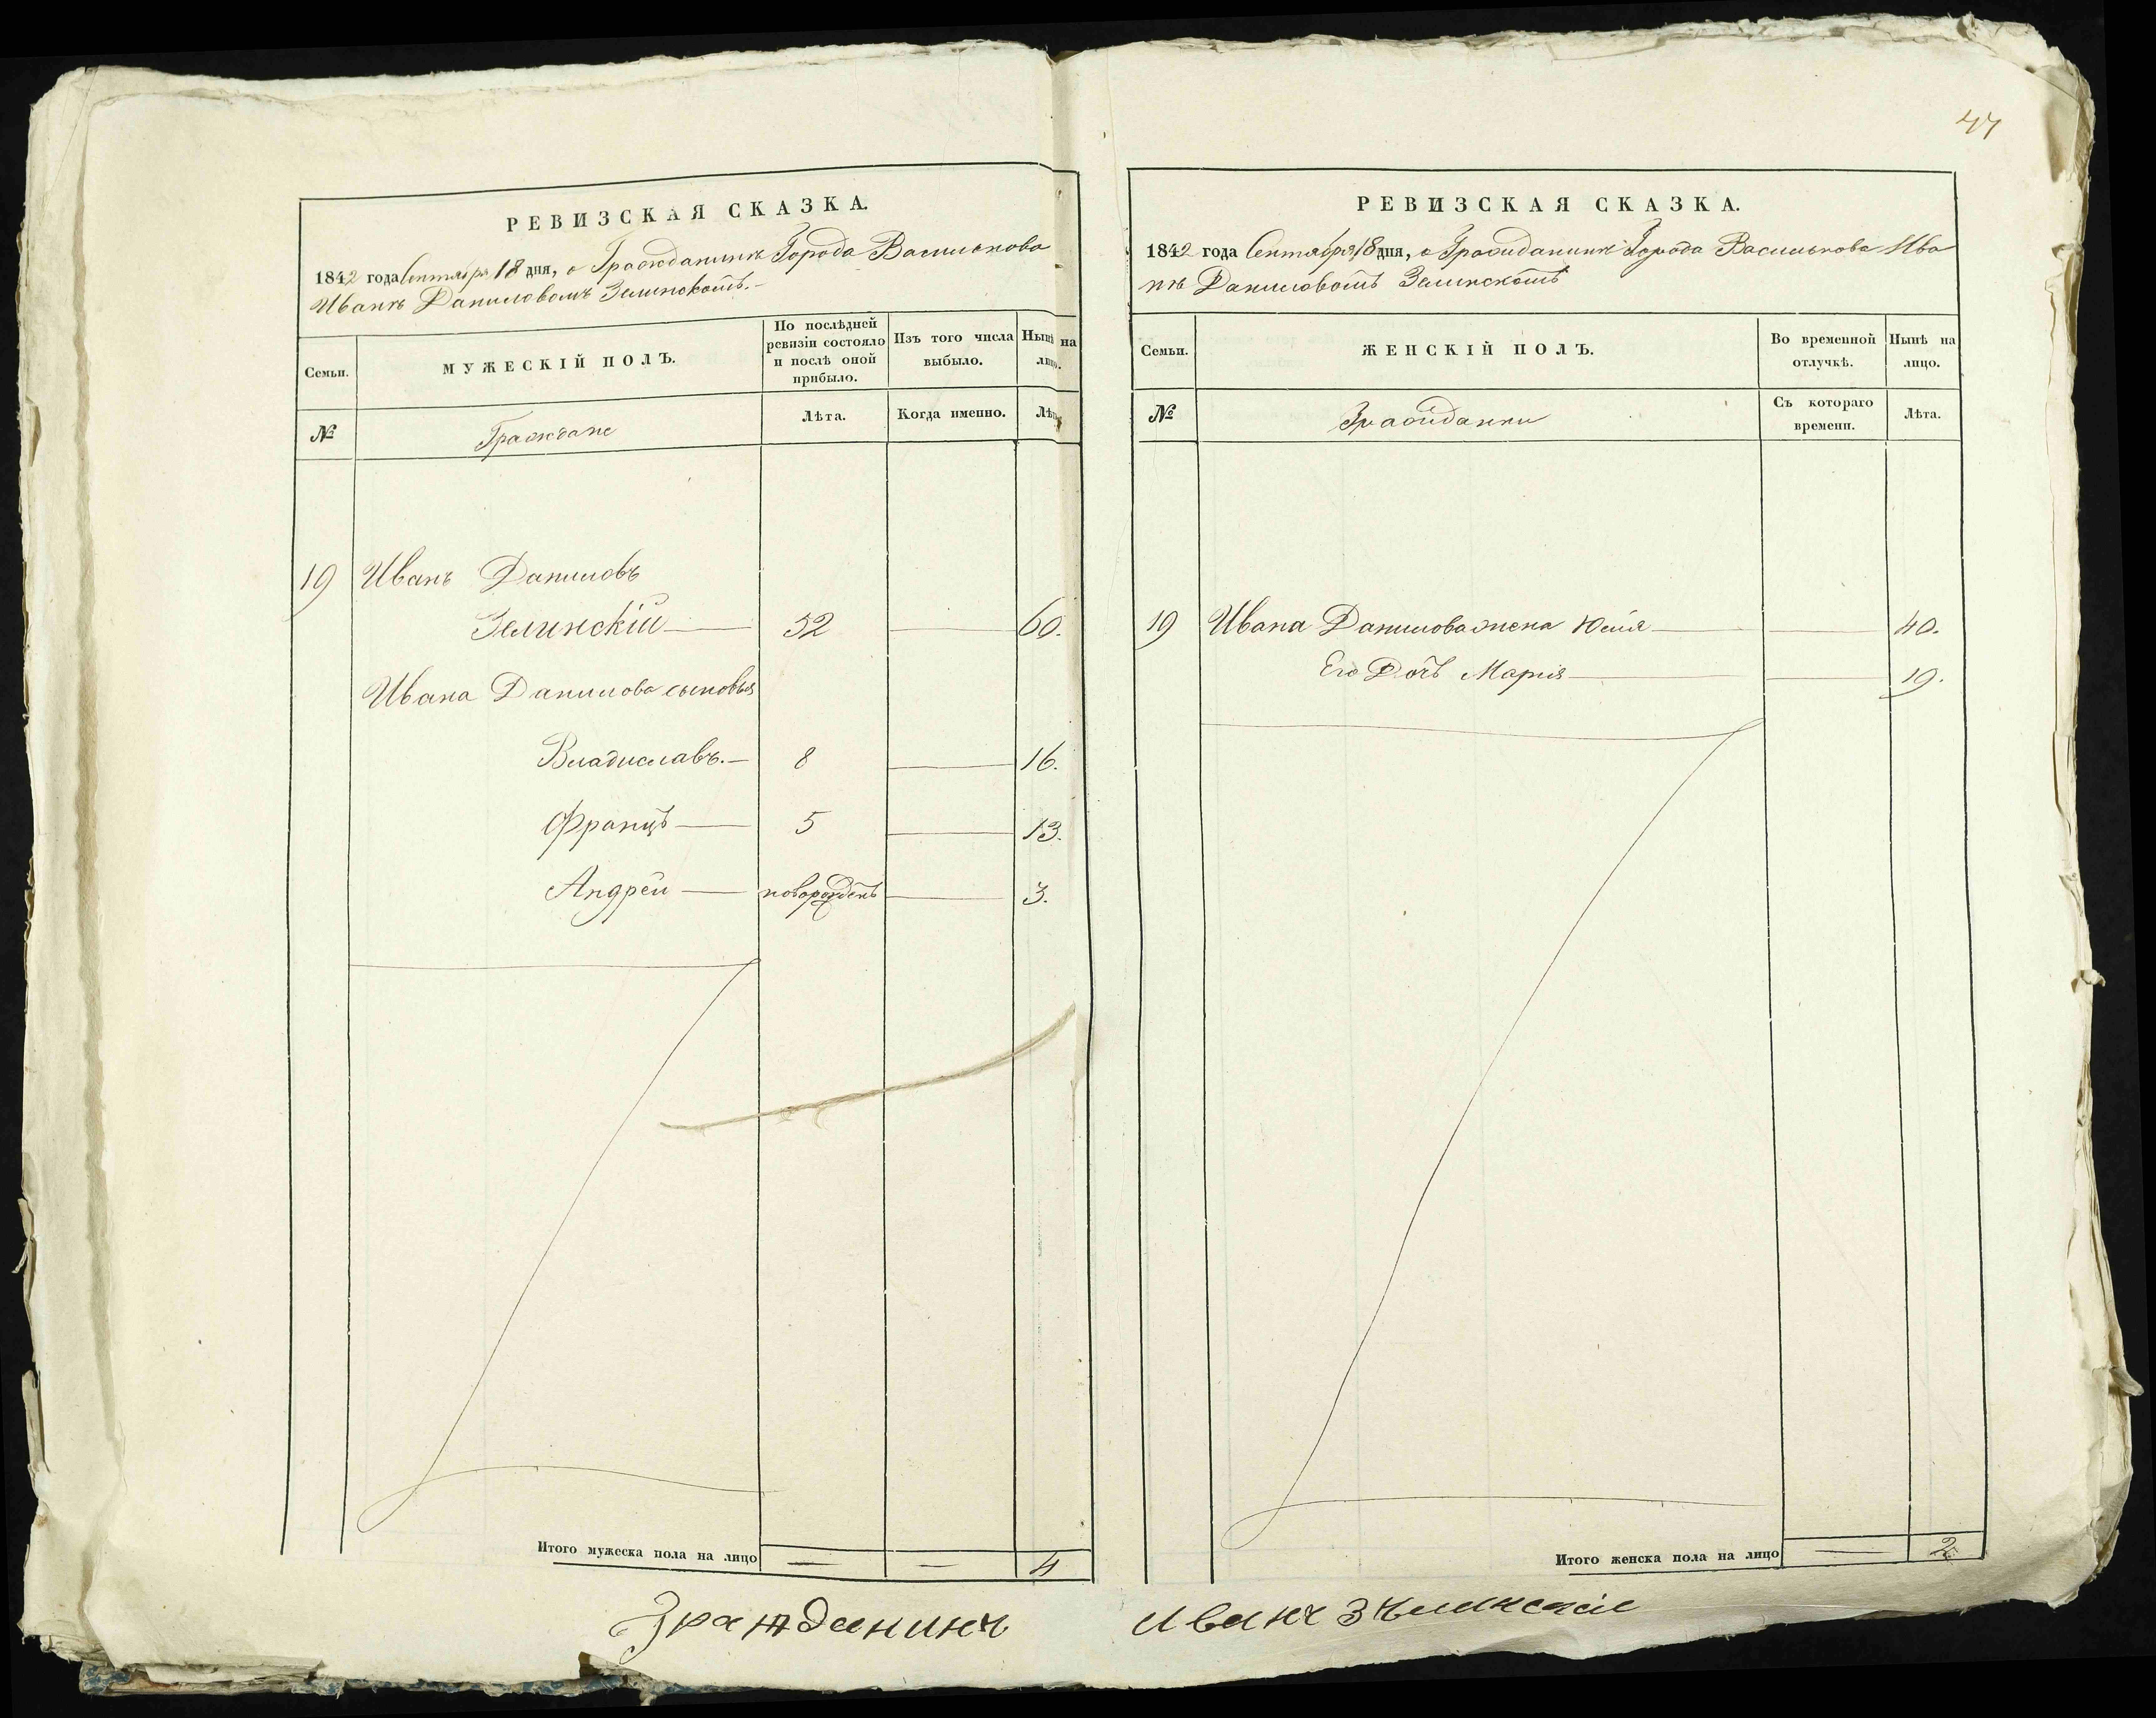 47
РЕВИЗСКАЯ СКАЗКА.
1842 года Сентября 18 дня, о Гражданинѣ Города Василькова
Иванѣ Даниловомъ Зелинскомъ.
Семьи.
МУЖЕСКІЙ ПОЛЪ.
По послѣдней
ревизіи состояло
и послѣ оной
прибыло.
Изъ того числа
выбыло.
Нынѣ на
лицо.
№
Граждане
Лѣта.
Когда именно.
Лѣта
19 Иванъ Даниловъ
Зелинскій — 52 — 60.
Ивана Данилова сыновья
Владиславъ. — 8 — 16.
Францъ — 5 — 13.
Андрей — новорожденъ — 3.
Итого мужеска пола на лицо — — 4
РЕВИЗСКАЯ СКАЗКА.
1842 года Сентября 18 дня, о Гражданинѣ Города Василькова Ива
нѣ Даниловомъ Зелинскомъ
Семьи.
ЖЕНСКІЙ ПОЛЪ.
Во временной
отлучкѣ.
Нынѣ на
лицо.
№
Гражданки
Съ котораго
времени.
Лѣта.
19 Ивана Данилова жена Юлія — — 40.
Его Дочь Марія — — 19.
Итого женска пола на лицо — 2
Гражданинъ Иванъ Зѣлинскій